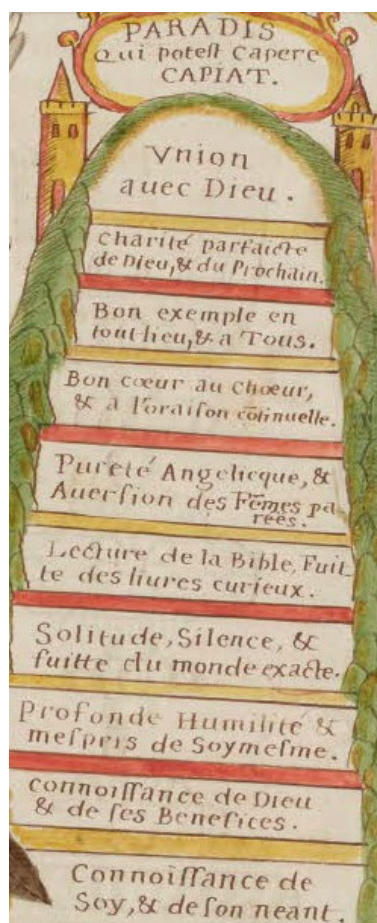 PARADIS
Qui potest Capere
CAPIAT.
Vnion
auec Dieu.
Charité parfaicte
de Dieu, & du Prochain.
Bon exemple en
tout lieu, & a Tous.
Bon cœur au Chœur,
& a l'oraison cõtinuelle.
Pureté Angelicque, &
Auersion des Fẽmes pa
rées.
Lecture de la Bible, Fuit
te des liures curieux.
Solitude, Silence, &
fuitte du monde exacte.
Profonde Humilité &
mespris de Soymesme.
connoissance de Dieu
& de ses Benefices.
Connoissance de
Soy, & de son neant